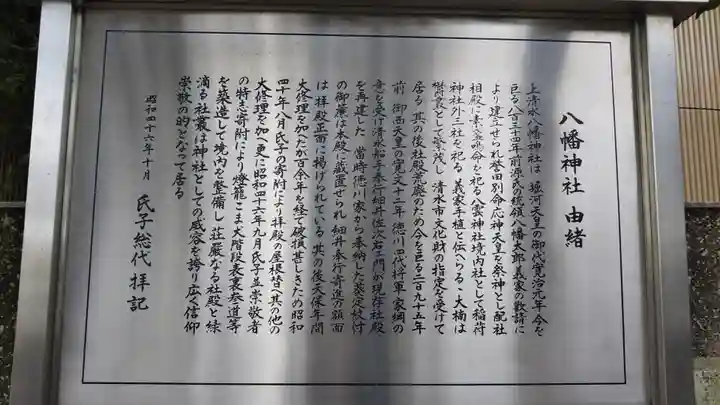 八幡神社 由緒
上清水八幡神社は 堀河天皇の御代寛治元年今を
巨る八百三十四年前源氏の統領八幡太郎義家の勧請に
より建立せられ誉田別命応神天皇を祭神とし配社
相殿に素盞嗚命を祀る八雲神社境内社として稲荷
神社外三社を祀る 義家手植と伝へらるゝ大楠は
欝蒼として繁茂し 清水市文化財の指定を受けて
居る 其の後社殿荒廃のため今を巨る二百九十五年
前 御西天皇の寛文十二年 徳川四代将軍 家綱の
意を受け清水船手奉行細井佐次右ェ門が現存社殿
を再建した 当時徳川家から奉納した葵定紋付
の御簾は本殿に蔵置せられ 細井奉行寄進の額面
は 拝殿正面に掲げられている 其の後天保年間
大修理を加へたが百余年を経て破損甚しきため昭和
四十年八月氏子の寄附により拝殿の屋根替へ其の他の
大修理を加へ更に昭和四十六年九月氏子並崇敬者
の特志寄附により燈籠こま犬階段表裏参道等
を築造して境内を整備し 荘厳なる社殿と緑
滴る社叢は神社としての威容を誇り広く信仰
崇敬の的となつて居る
昭和四十六年十月 氏子総代 拝記